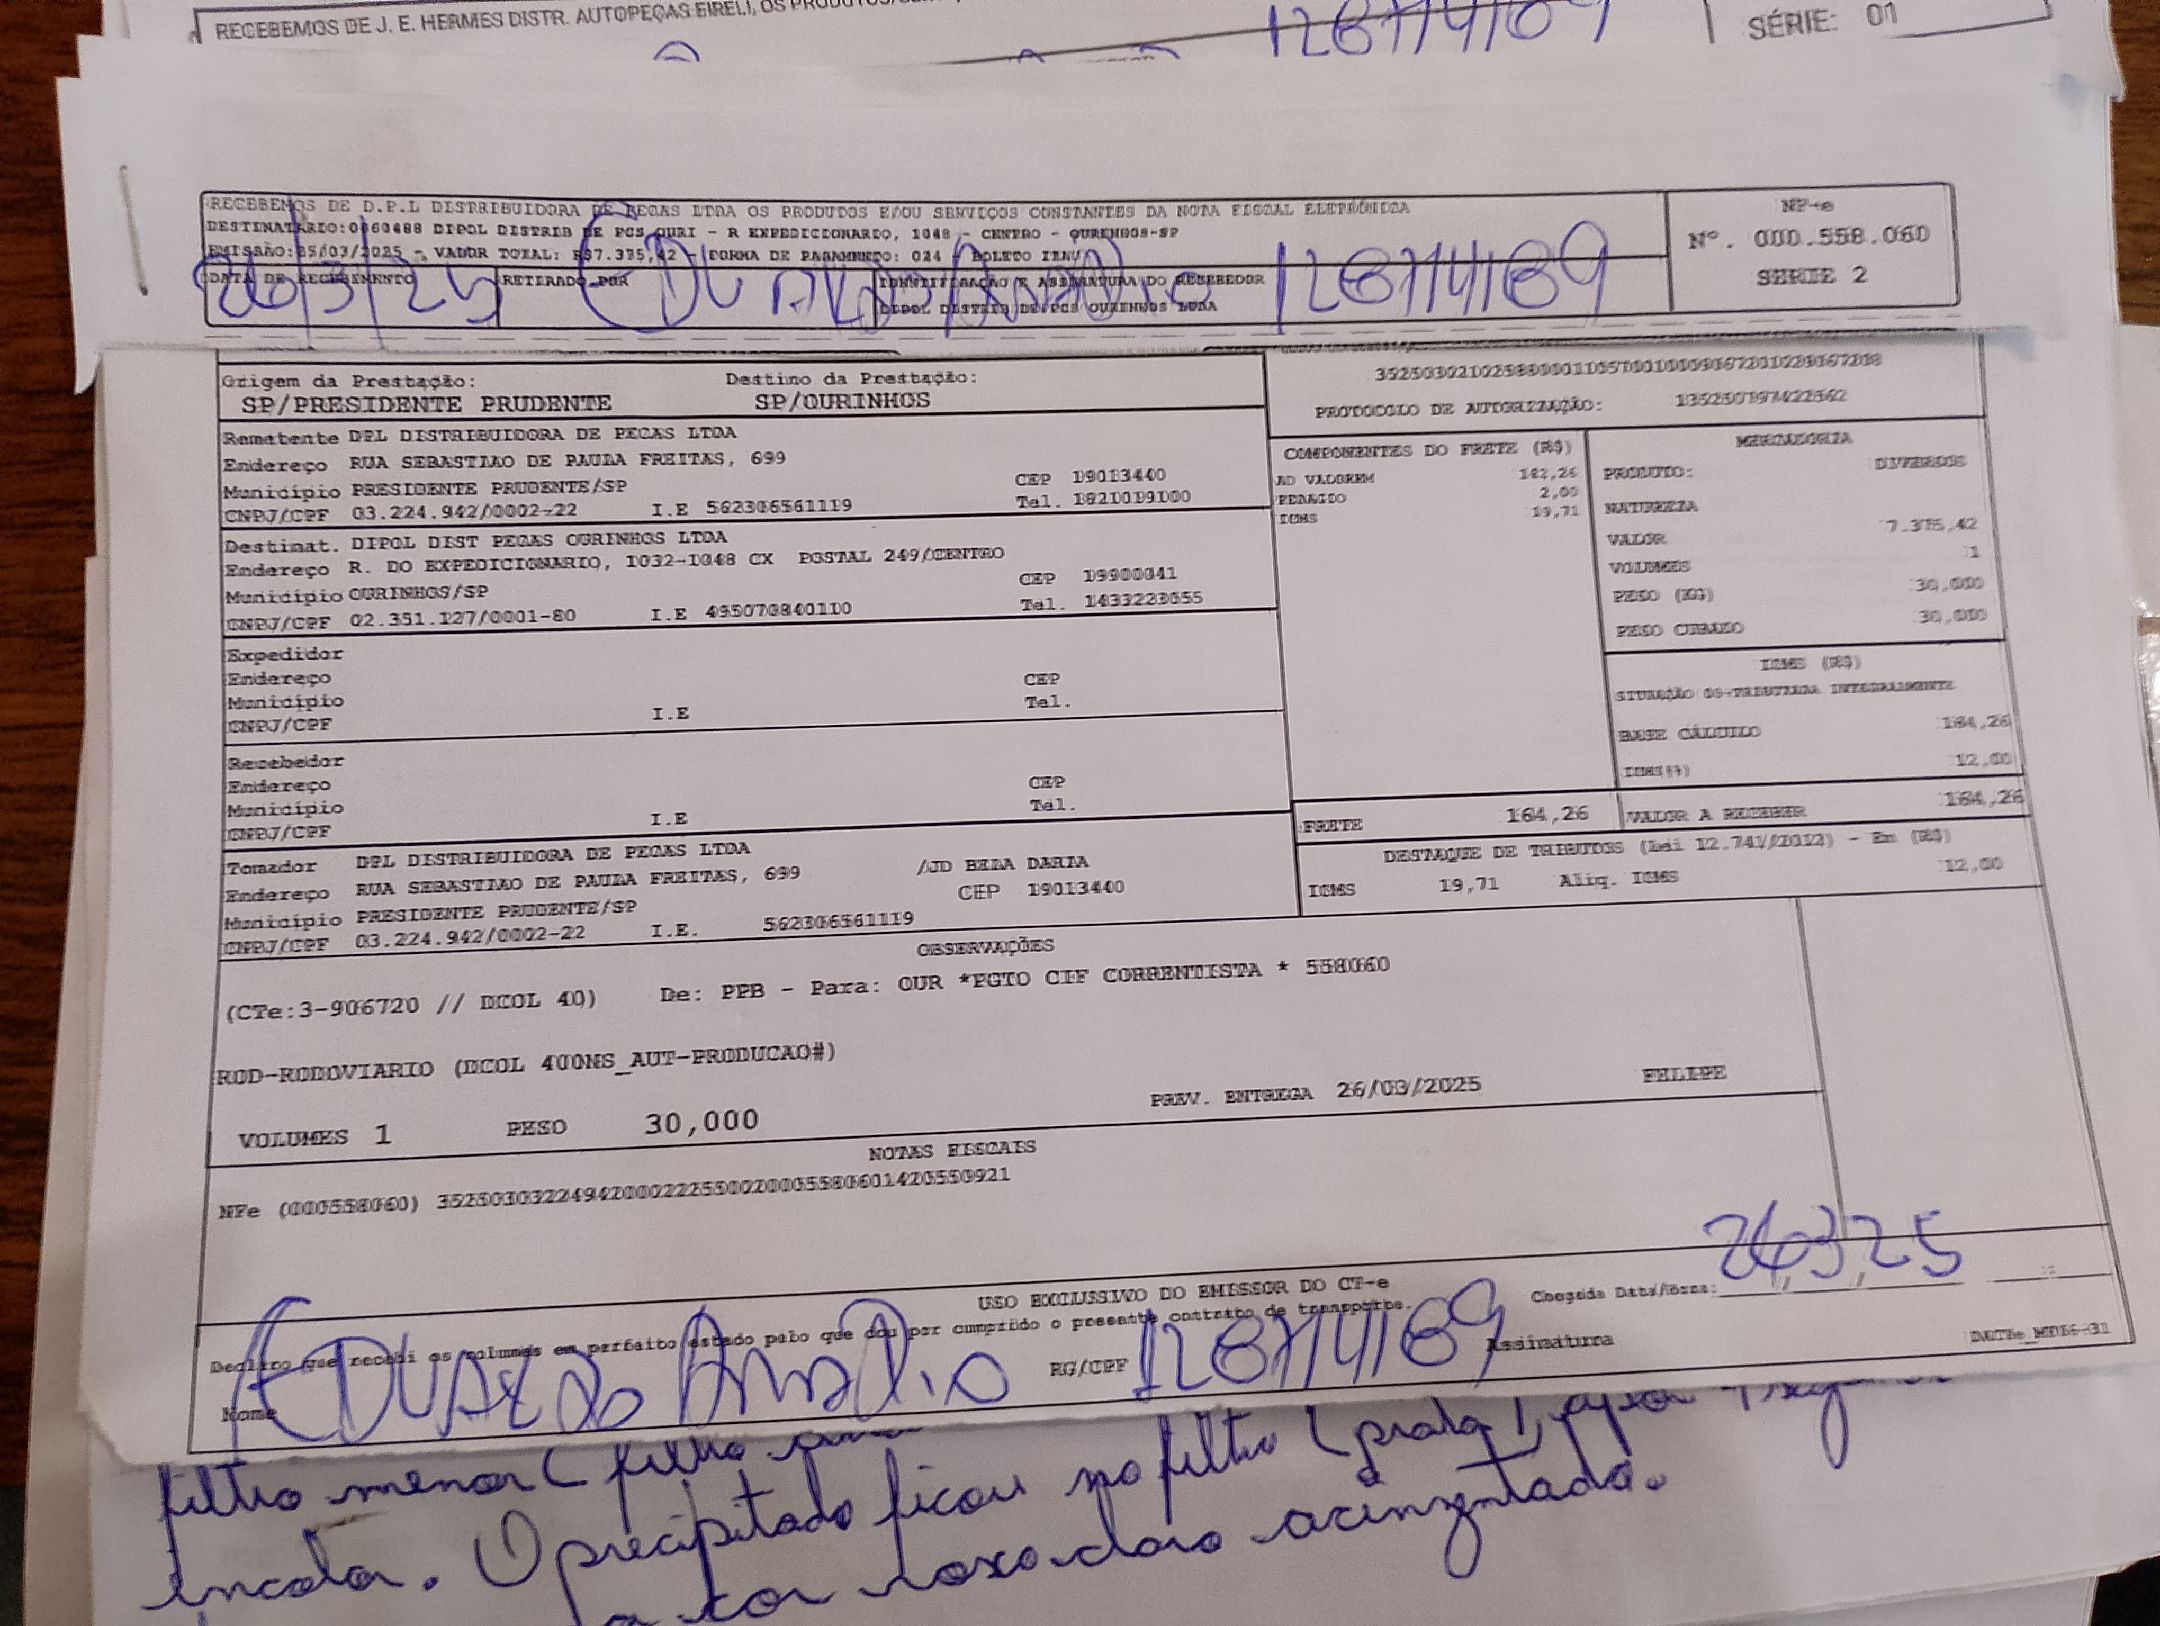 RECEBEMOS DE J. E. HERMES DISTR. AUTOPEÇAS EIRELI, OS
128714169
SÉRIE: 01
RECEBEMOS DE D.P.L DISTRIBUIDORA DE PECAS LTDA OS PRODUTOS E/OU SERVIÇOS CONSTANTES DA NOTA FISCAL ELETRÔNICA
DESTINATÁRIO:0060488 DIPOL DISTRIB DE PCS OURI - R EXPEDICIONARIO, 1048 - CENTRO - OURINHOS-SP
EMISSÃO:25/03/2025 - VALOR TOTAL: R$7.375,42 - FORMA DE PAGAMENTO: 024 - BOLETO ITAU
NF-e
Nº. 000.558.060
SERIE 2
DATA DE RECEBIMENTO
26/3/25
RETIRADO POR
IDENTIFICAÇÃO E ASSINATURA DO RECEBEDOR
DIPOL DISTRIB DE PCS OURINHOS LTDA
128714169
Origem da Prestação:
SP/PRESIDENTE PRUDENTE
Destino da Prestação:
SP/OURINHOS
PROTOCOLO DE AUTORIZAÇÃO:
Remetente DPL DISTRIBUIDORA DE PECAS LTDA
Endereço RUA SEBASTIAO DE PAULA FREITAS, 699
Município PRESIDENTE PRUDENTE/SP CEP 19013440
CNPJ/CPF 03.224.942/0002-22 I.E 562306561119 Tel. 1821019100
Destinat. DIPOL DIST PECAS OURINHOS LTDA
Endereço R. DO EXPEDICIONARIO, 1032-1048 CX POSTAL 249/CENTRO
Município OURINHOS/SP CEP 19900041
CNPJ/CPF 02.351.127/0001-80 I.E 495070840110 Tel. 1433223655
Expedidor
Endereço
Município CEP
CNPJ/CPF I.E Tel.
Recebedor
Endereço
Município CEP
CNPJ/CPF I.E Tel.
Tomador DPL DISTRIBUIDORA DE PECAS LTDA
Endereço RUA SEBASTIAO DE PAULA FREITAS, 699 /JD BELA DARIA
Município PRESIDENTE PRUDENTE/SP CEP 19013440
CNPJ/CPF 03.224.942/0002-22 I.E. 562306561119
COMPONENTES DO FRETE (R$)
AD VALOREM 162,26
PEDAGIO 2,00
ICMS 19,71
MERCADORIA
PRODUTO: DIVERSOS
NATUREZA
VALOR 7.375,42
VOLUMES 1
PESO (KG) 30,000
PESO CUBADO 30,000
ICMS (R$)
SITUAÇÃO 00-TRIBUTADA INTEGRALMENTE
BASE CÁLCULO 164,26
ICMS(%) 12,00
FRETE 164,26
VALOR A RECEBER 164,26
DESTAQUE DE TRIBUTOS (Lei 12.741/2012) - Em (R$)
ICMS 19,71 Aliq. ICMS 12,00
OBSERVAÇÕES
(CTe:3-906720 // DCOL 40) De: PPB - Para: OUR *PGTO CIF CORRENTISTA * 558060
ROD-RODOVIARIO (DCOL 400NS_AUT-PRODUCAO#)
VOLUMES 1 PESO 30,000 PREV. ENTREGA 26/03/2025 FELIPE
NOTAS FISCAIS
NFe (000558060) 35250303224942000222550020005580601420550921
USO EXCLUSIVO DO EMISSOR DO CT-e
Declaro que recebi os volumes em perfeito estado pelo que dou por cumprido o presente contrato de transporte.
Chegada Data/Hora: 26/3/25
Nome EDUARDO RG/CPF 128714169 Assinatura
filtro menor (filtro
incolor. O precipitado ficou no filtro (prata), após
a cor roxo claro acinzentado.